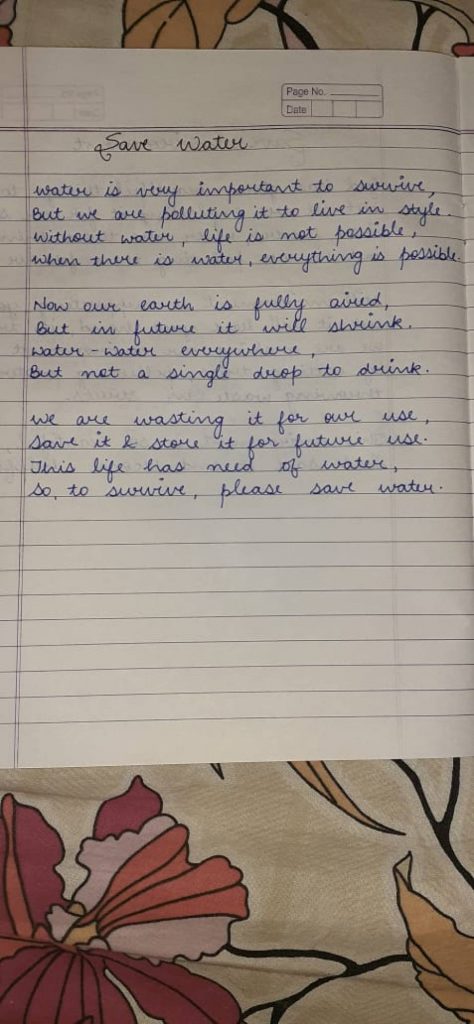 Page No.
Date
Save Water
water is very important to survive,
But we are polluting it to live in style.
Without water, life is not possible,
When there is water, everything is possible.
Now our earth is fully aired,
But in future it will shrink.
Water-water everywhere,
But not a single drop to drink.
We are wasting it for our use,
Save it & store it for future use.
This life has need of water,
So, to survive, please save water.